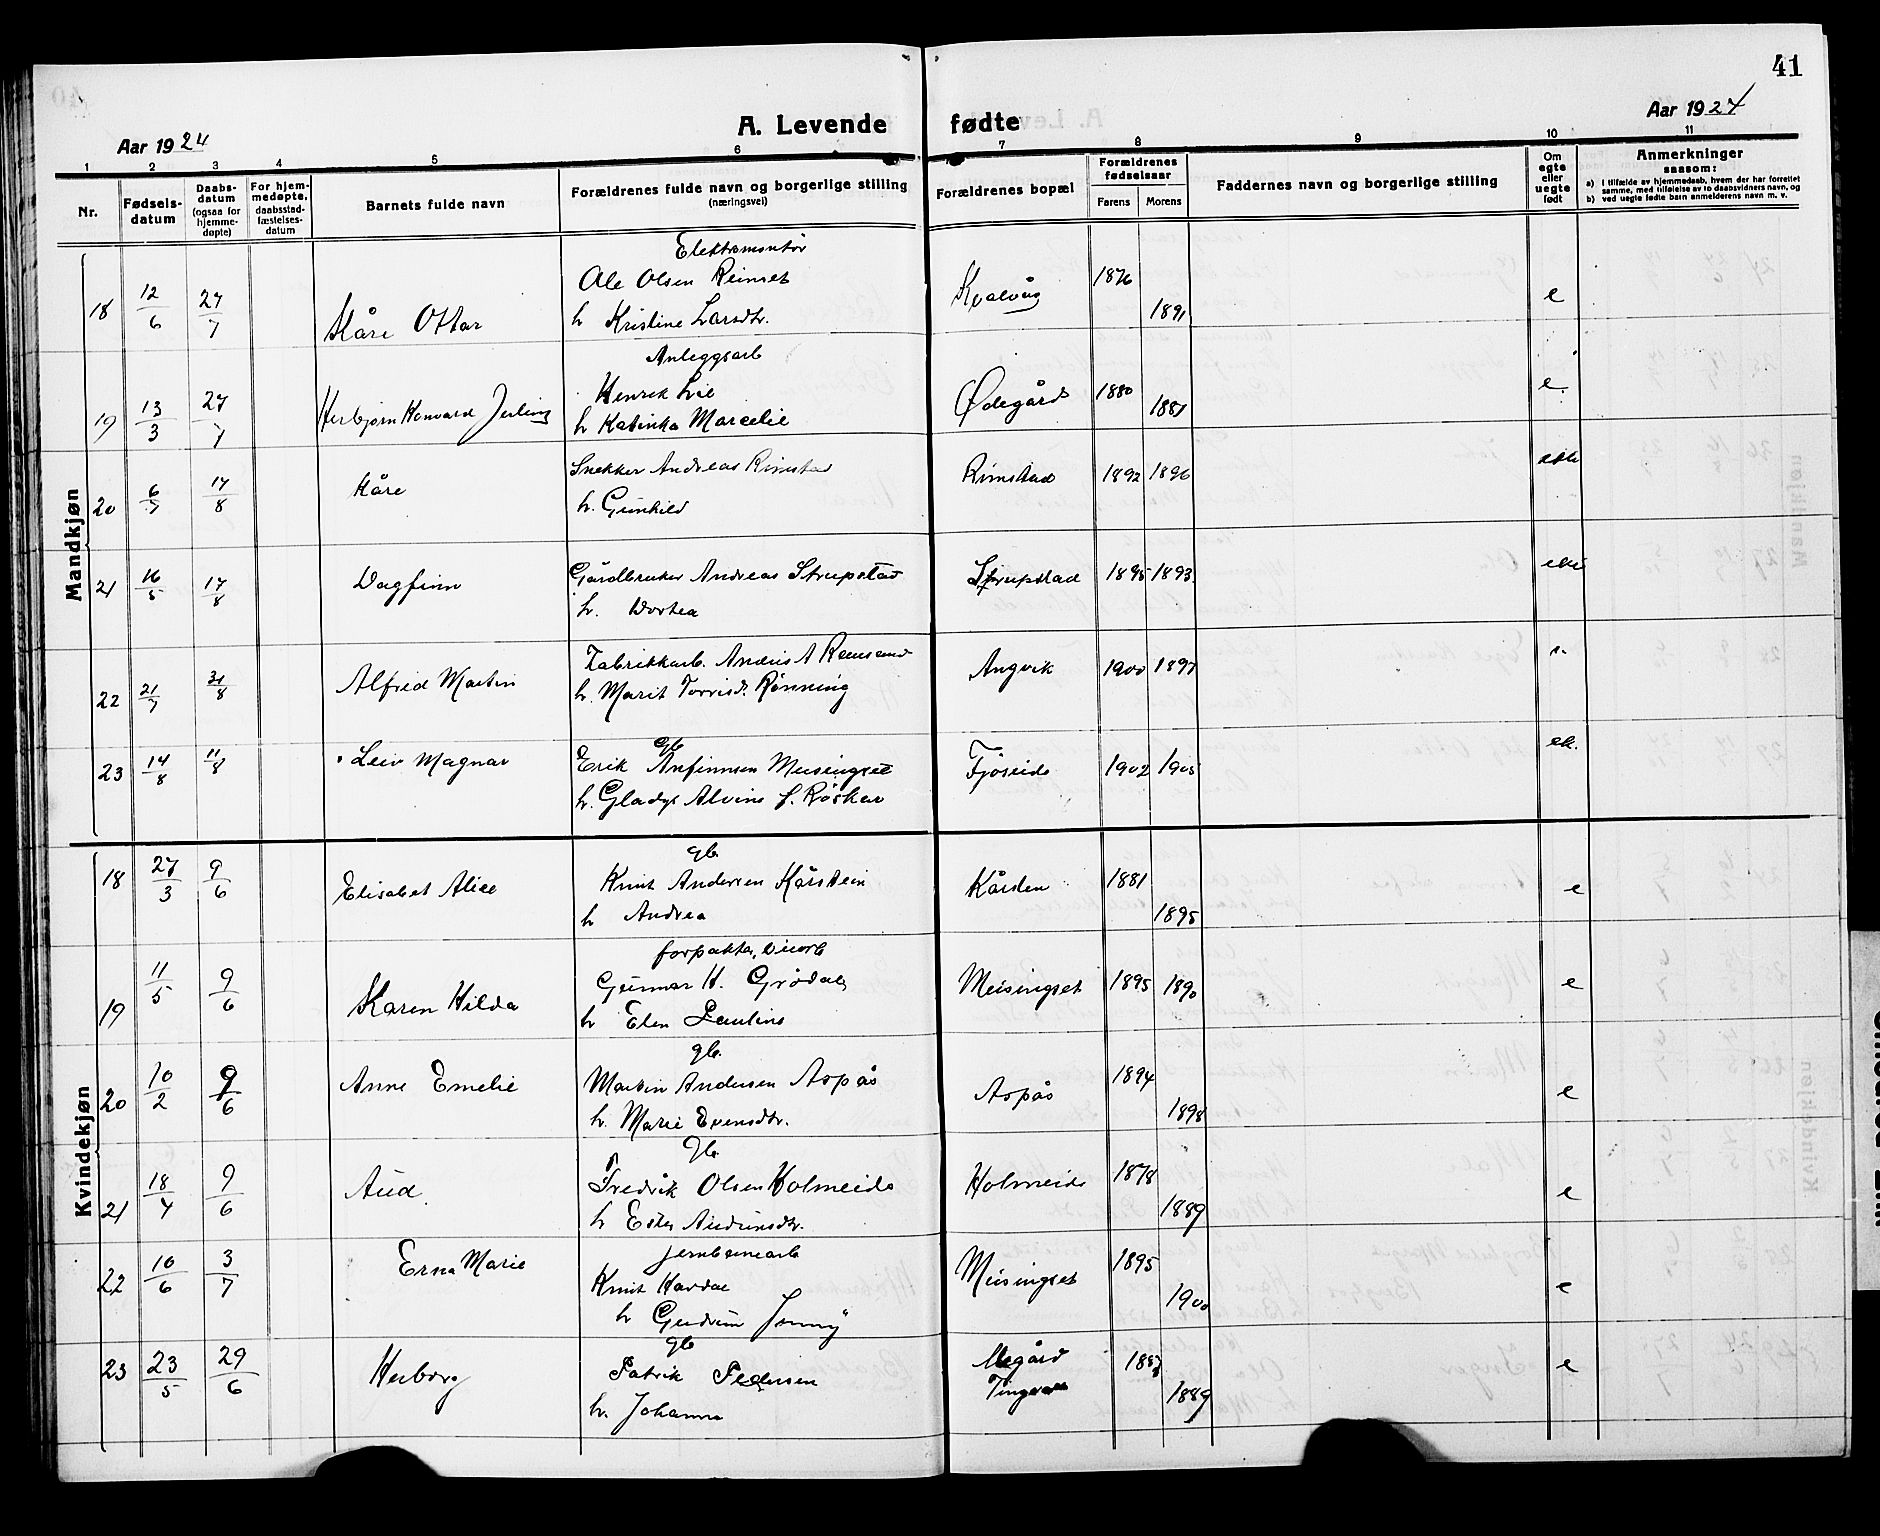 41
Aar 1924
A. Levende fødte
Aar 1924
1 2 3 4 5 6 7 8 9 10 11
Nr.
Fødsels-
datum
Daabs-
datum
(ogsaa for
hjemme-
døpte)
For hjem-
medøpte,
daabsstad-
fæstelses-
datum
Barnets fulde navn
Forældrenes fulde navn og borgerlige stilling
(næringsvei)
Forældrenes bopæl
Forældrenes
fødselsaar
Farens Morens
Faddernes navn og borgerlige stilling
Om
egte
eller
uegte
født
Anmerkninger
saasom:
a) I tilfælde av hjemmedaab, hvem der har forrettet
samme, med tilføielse av to daabsvidners navn, og
b) ved uegte fødte barn anmelderens navn m. v.
Mandkjøn
Elektromontør
18 12/6 27/7 Kåre Ottar Ole Olsen Reinset Kvalvåg 1876 e
h Kristine Larsdtr. 1891
Anleggsarb
19 13/3 27/7 Herbjørn Henrik Lie Ødegård 1880 e
h Katinka Marcelie 1881
20 6/7 17/8 Kåre Snekker Andreas Rimstad Rimstad 1892 1896
h. Gunhild
21 16/5 17/8 Dagfinn Gårdbruker Andreas Strupstad Strupstad 1895 1893
h. Dortea
22 21/7 31/8 Alfred Martin Fabrikkarb. A Angvik 1900 1897
h. Marit Rønning
gb
23 14/8 11/8 Leiv Magnar Erik Anfinnsen Meisingset Fjøseide 1902 1905
h. Gladys Alvine f. Røskar
Kvindekjøn
gb.
18 27/3 9/6 Elisabet Alice Knut Andersen Hårstein Kården 1881 e
h Andrea 1895
forpakter,
19 11/5 9/6 Karen Hilda Gunnar H. Grødal Meisingset 1895 1890 e
h Elen Pauline
gb.
20 10/2 9/6 Anne Emelie Martin Andersen Aspås Aspås 1894 e
h. Marie Evensdtr. 1898
gb.
21 18/4 9/6 Aud Fredrik Olsen Holmeide Holmeide 1878 e
h Ester 1889
jernbanearb
22 10/6 3/7 Erna Marie Knut Meisingset 1895 e
h Gudrun Jenny 1900
gb
23 23/5 29/6 Herborg Patrik Pedersen Megård e
h. Johanna Tingvoll 1889